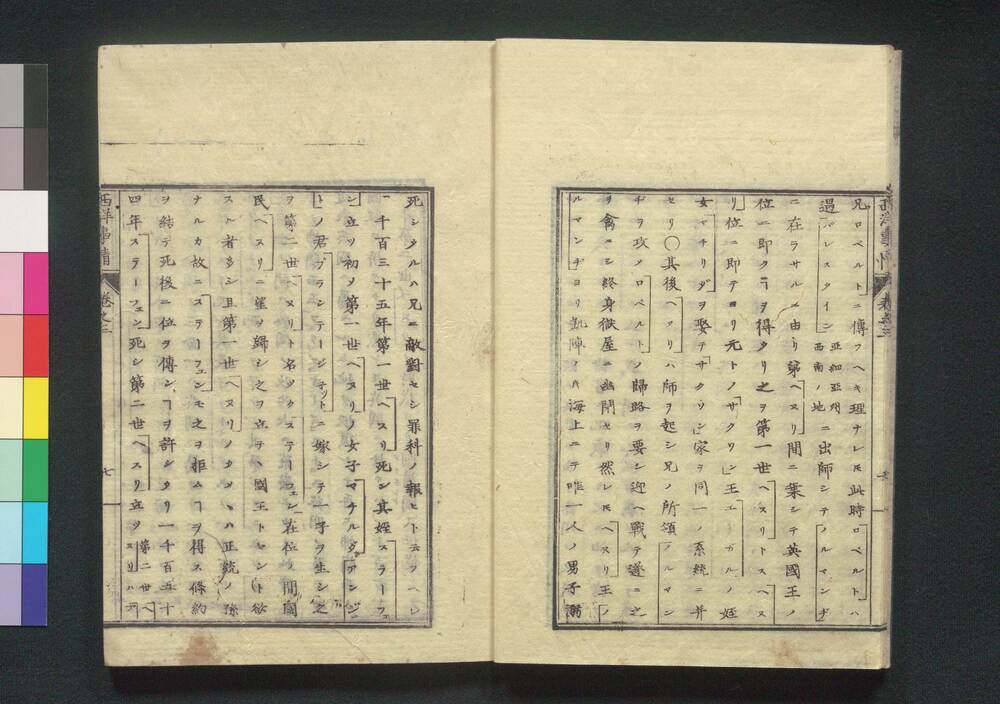 兄「ロベルト」ニ傳フヘキ理ナレ𪜈此時「ロベルト」ハ
適「パレスタイン」亞細亞州西南ノ地ニ出師シテ「ノルマンヂ」
ニ在ラサルニ由リ弟「ヘヌリ」間ニ乗シテ英國王ノ
位ニ即クヿヲ得タリ之ヲ第一世「ヘヌリ」トス「ヘヌ
リ」位ニ即テヨリ元トノ「サクソン」王「エドガル」ノ姪
女「マチリダ」ヲ娶テ「サクソン」家ヲ同一ノ系統ニ并
セリ〇其後「ヘヌリ」ハ師ヲ起シ兄ノ所領「ノルマン
ヂ」ヲ攻メ「ロベルト」ノ歸路ヲ要シ迎ヘ戰テ遂ニ之
ヲ禽ニシ終身獄屋ニ幽閉セリ然レ𪜈「ヘヌリ」王「ノ
ルマンヂ」ヨリ凱陣ノ片海上ニテ唯一人ノ男子溺
西洋事情 卷之三
死シタルハ兄ニ敵對セシ罪科ノ報ヒト云フヘシ
一千百三十五年第一世「ヘヌリ」死シ其姪「ステーフ
ェン」立ツ初メ第一世「ヘヌリ」ノ女子「マチルダ」「アンジ
ー」ノ君「プランテージネット」ニ嫁シテ一子ヲ生シ之
ヲ第二世「ヘヌリ」ト名ツク「ステーフェン」在位ノ間國
民「ヘヌリ」ニ望ヲ歸シ之ヲ立テヽ國王トセント欲
スル者多シ且第一世「ヘヌリ」ノタメニハ正統ノ孫
ナルカ故ニ「ステーフェン」モ之ヲ拒ムヿヲ得ス條約
ヲ結テ死後ニ位ヲ傳シヿヲ許シタリ一千百五十
四年「ステーフェン」死シ第二世「ヘヌリ」立ツ第二世「ヘ
西洋事情 卷之三 七